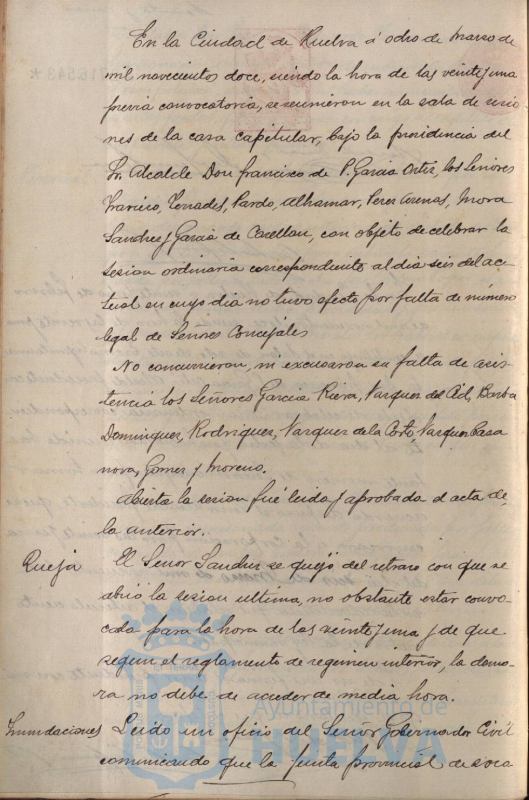 En la Ciudad de Huelva á ocho de Marzo de
mil novecientos doce, siendo la hora de las veintiuna
previa convocatoria, se reunieron en la sala de sesio
nes de la casa capitular, bajo la presidencia del
Sr. Alcalde Don Francisco de P. Garcia Ortiz, los Señores
Tenades, Pardo, Alhamar, Perez Arenas, Mora
Sanchez y Garcia de Castellan, con objeto de celebrar la
sesion ordinaria correspondiente al dia seis del ac
tual en cuyo dia no tuvo efecto por falta de número
legal de Señores Concejales
No concurrieron, ni excusaron su falta de asis
tencia los Señores Garcia Riera, Vazquez del Cid, Barba
Dominguez, Rodriguez, Vazquez de la Corte, Vazquez Casa
nova, Gomez y Moreno.
Abierta la sesion fué leida y aprobada el acta de
la anterior.
Queja El Señor Sanchez se quejó del retraso con que se
abrió la sesion ultima, no obstante estar convo
cada para la hora de las veintiuna y de que
segun el reglamento de regimen interior, la demo
ra no debe de acceder de media hora.
Inundaciones Leido un oficio del Señor Gobernador Civil
comunicando que la Junta provincial de soco
Ayuntamiento de
HUELVA